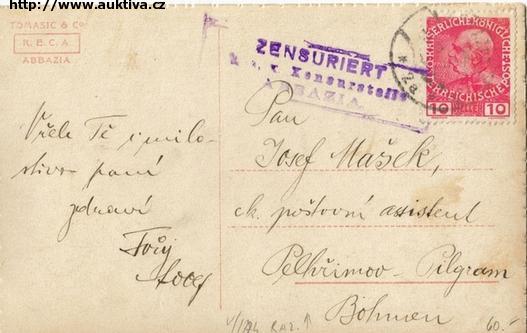 http://www.auktiva.cz
TOMASIC & Co
R.E.C.A.
ABBAZIA
ZENSURIERT
k.u.k. Zensurstelle
ABBAZIA
KAISERLICHE KÖNIGLICHE
ÖSTERREICHISCHE
10 10
Vřele Tě i milo-
stivou paní
zdraví
Tvůj
Josef
Pan
Josef Mašek,
ck. poštovní assistent
Pelhřimov - Pilgram
Böhmen
60.-